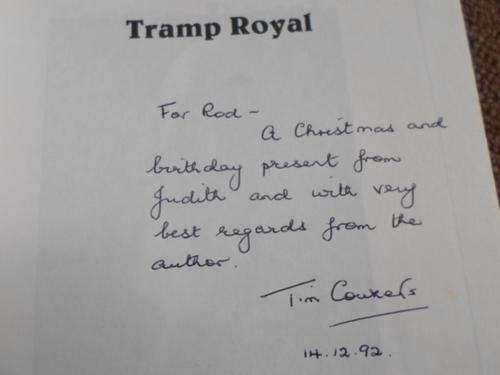 Tramp Royal
For Rod -
A Christmas and
birthday present from
Judith and with very
best regards from the
author.
Tim Couzens
14.12.92.